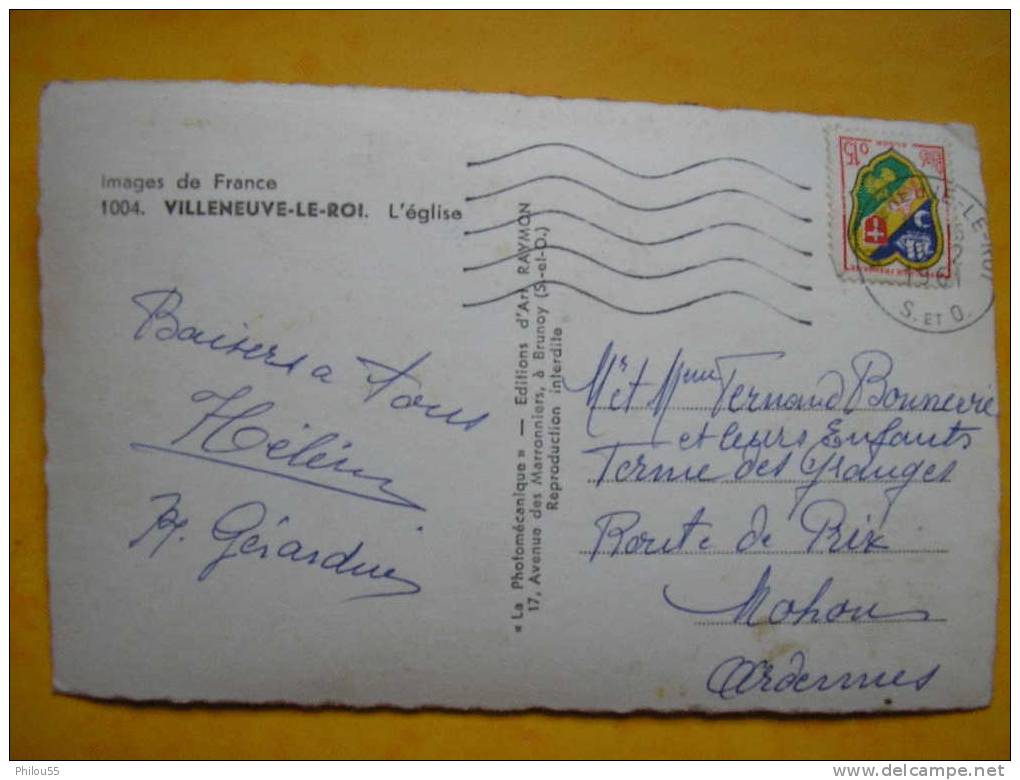 Images de France
1004. VILLENEUVE-LE-ROI. L'église
Baisers a tous
Hélène
« La Photomécanique » — Editions d'Art RAYMON
17, Avenue des Marronniers, à Brunoy (S.-et-O.)
Reproduction interdite
0,15
E-LE-ROI
1961
S. ET O.
Mr et Mme Fernand
et leurs Enfants
Ferme des Granges
Route de Prix
Mohon
Ardennes
Philou55
www.delcampe.net